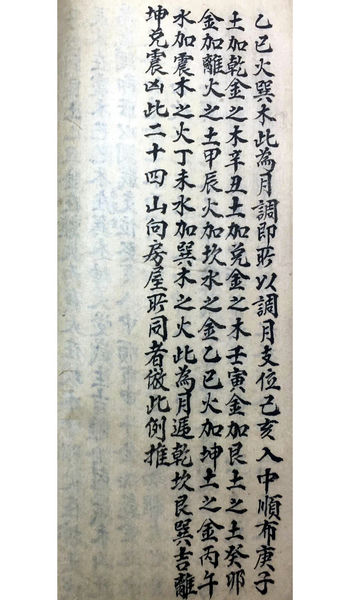 乙已火巽木此為月調即所以調月支位己亥入中順布庚子
土加乾金之木辛丑土加兌金之木壬寅金加艮土之土癸卯
金加離火之土甲辰火加坎水之金乙已火加坤土之金丙午
水加震木之火丁未水加巽木之火此為月遁乾坎艮巽吉離
坤兌震凶此二十四山向房屋所同者倣此例推